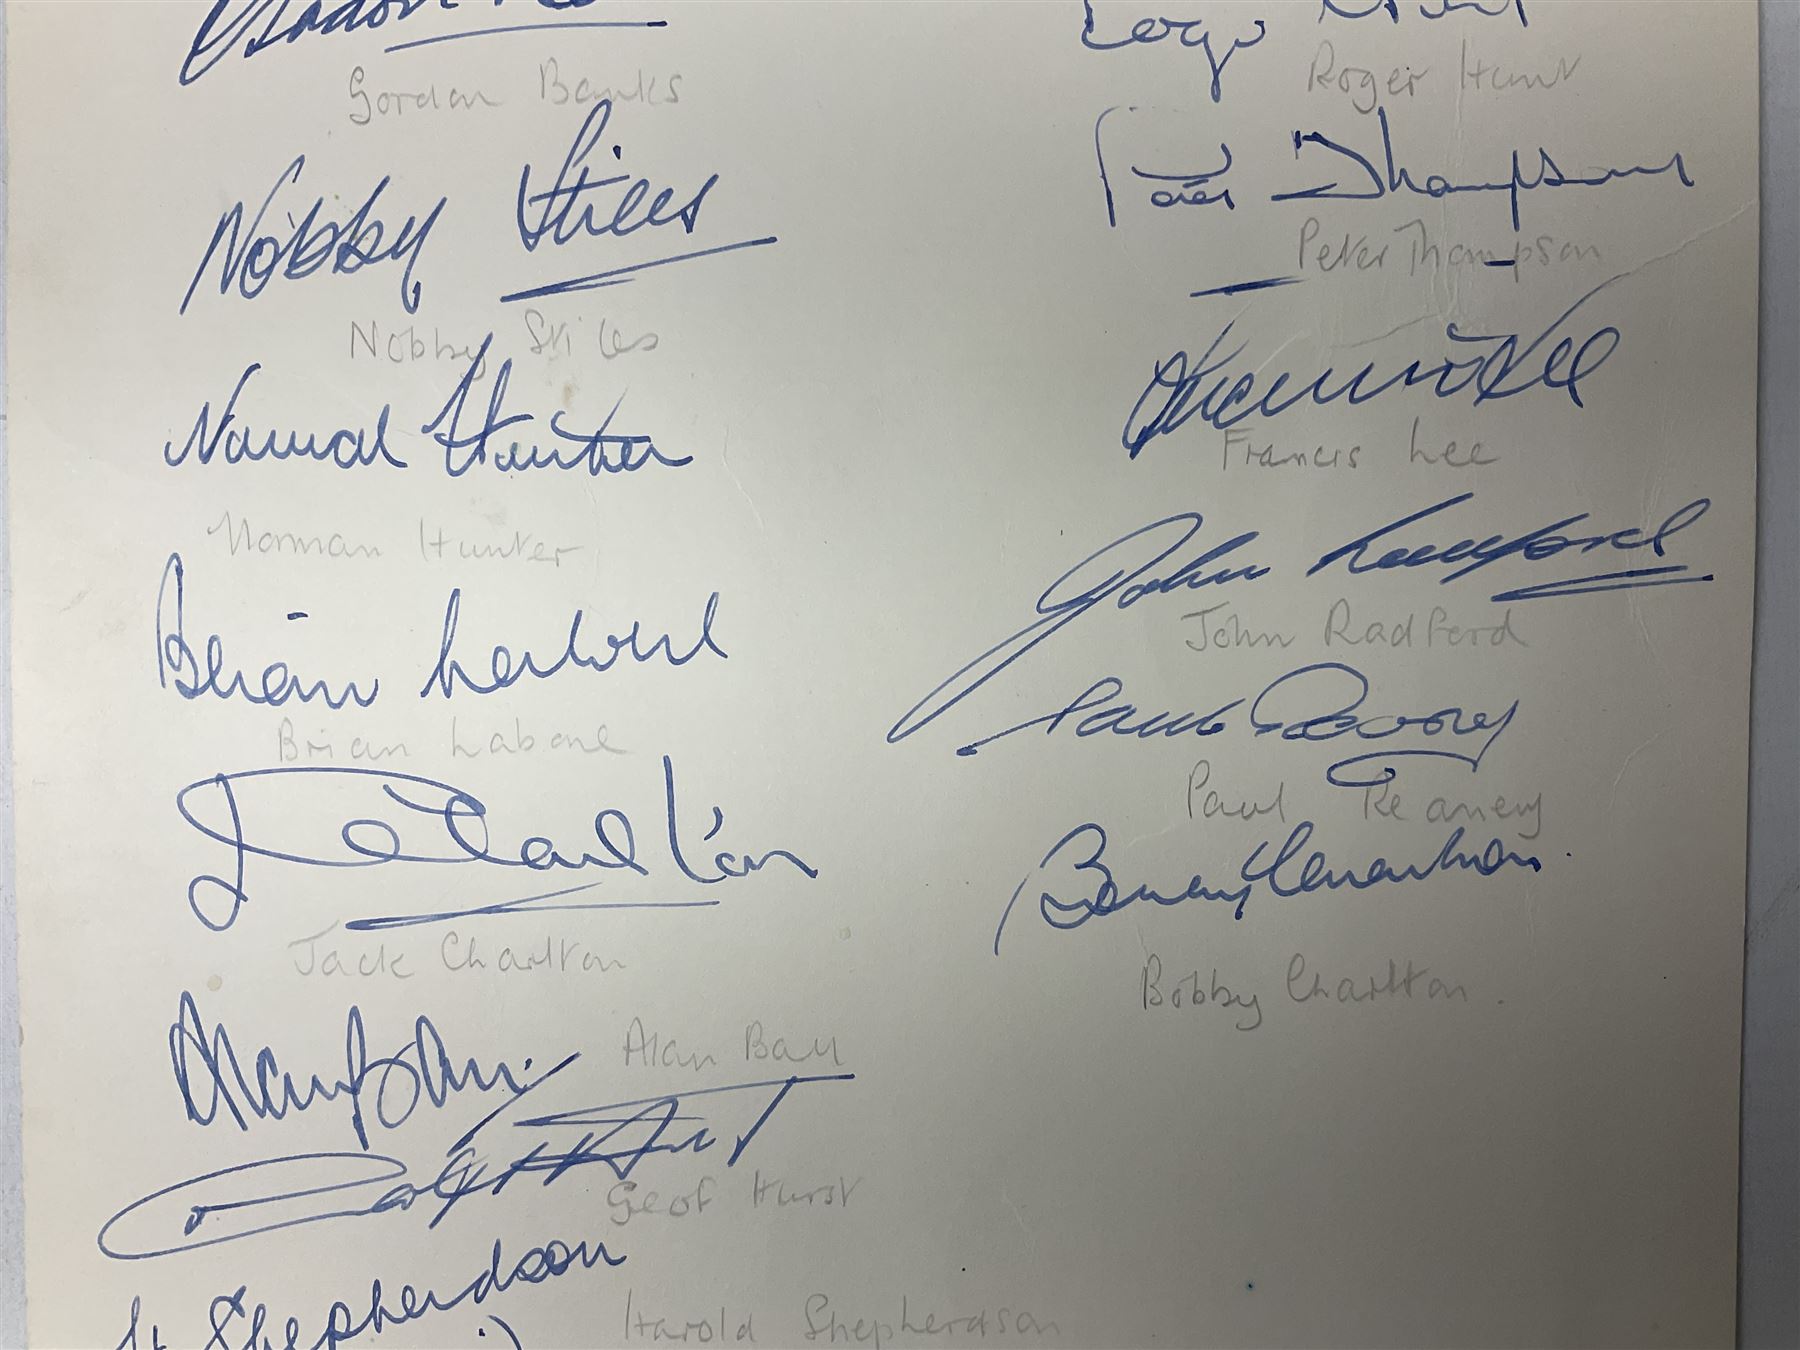 Gordon Banks
Nobby Stiles
Nobby Stiles
Norman Hunter
Norman Hunter
Brian Labone
Brian Labone
Jack Charlton
Jack Charlton
Alan Ball
Alan Ball
Geof Hurst
H Shepherdson
Harold Shepherdson
Roger Hunt
Roger Hunt
Peter Thompson
Peter Thompson
Francis Lee
Francis Lee
John Radford
John Radford
Paul Reaney
Paul Reaney
Bobby Charlton
Bobby Charlton.